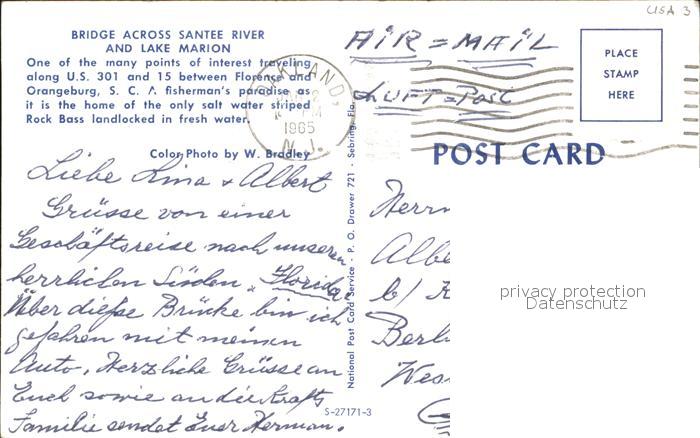 USA 3
BRIDGE ACROSS SANTEE RIVER
AND LAKE MARION
One of the many points of interest traveling
along U.S. 301 and 15 between Florence and
Orangeburg, S. C. A fisherman's paradise as
it is the home of the only salt water striped
Rock Bass landlocked in fresh water.
Color Photo by W. Bradley
Liebe Lina + Albert
Grüsse von einer
Geschäftsreise nach unseren
herrlichen Süden, Florida.
Über diese Brücke bin ich
gefahren mit meinen
Auto, Herzliche Grüsse an
Euch sowie an die Krafts
Familie sendet Euer Herman.
OAKLAND,
PM
1965
N.J.
National Post Card Service - P. O. Drawer 721 - Sebring, Fla.
S-27171-3
AIR = MAIL
LUFT = Post
PLACE
STAMP
HERE
POST CARD
Herrn
Albe
b/ K
Berl
Wes
privacy protection
Datenschutz